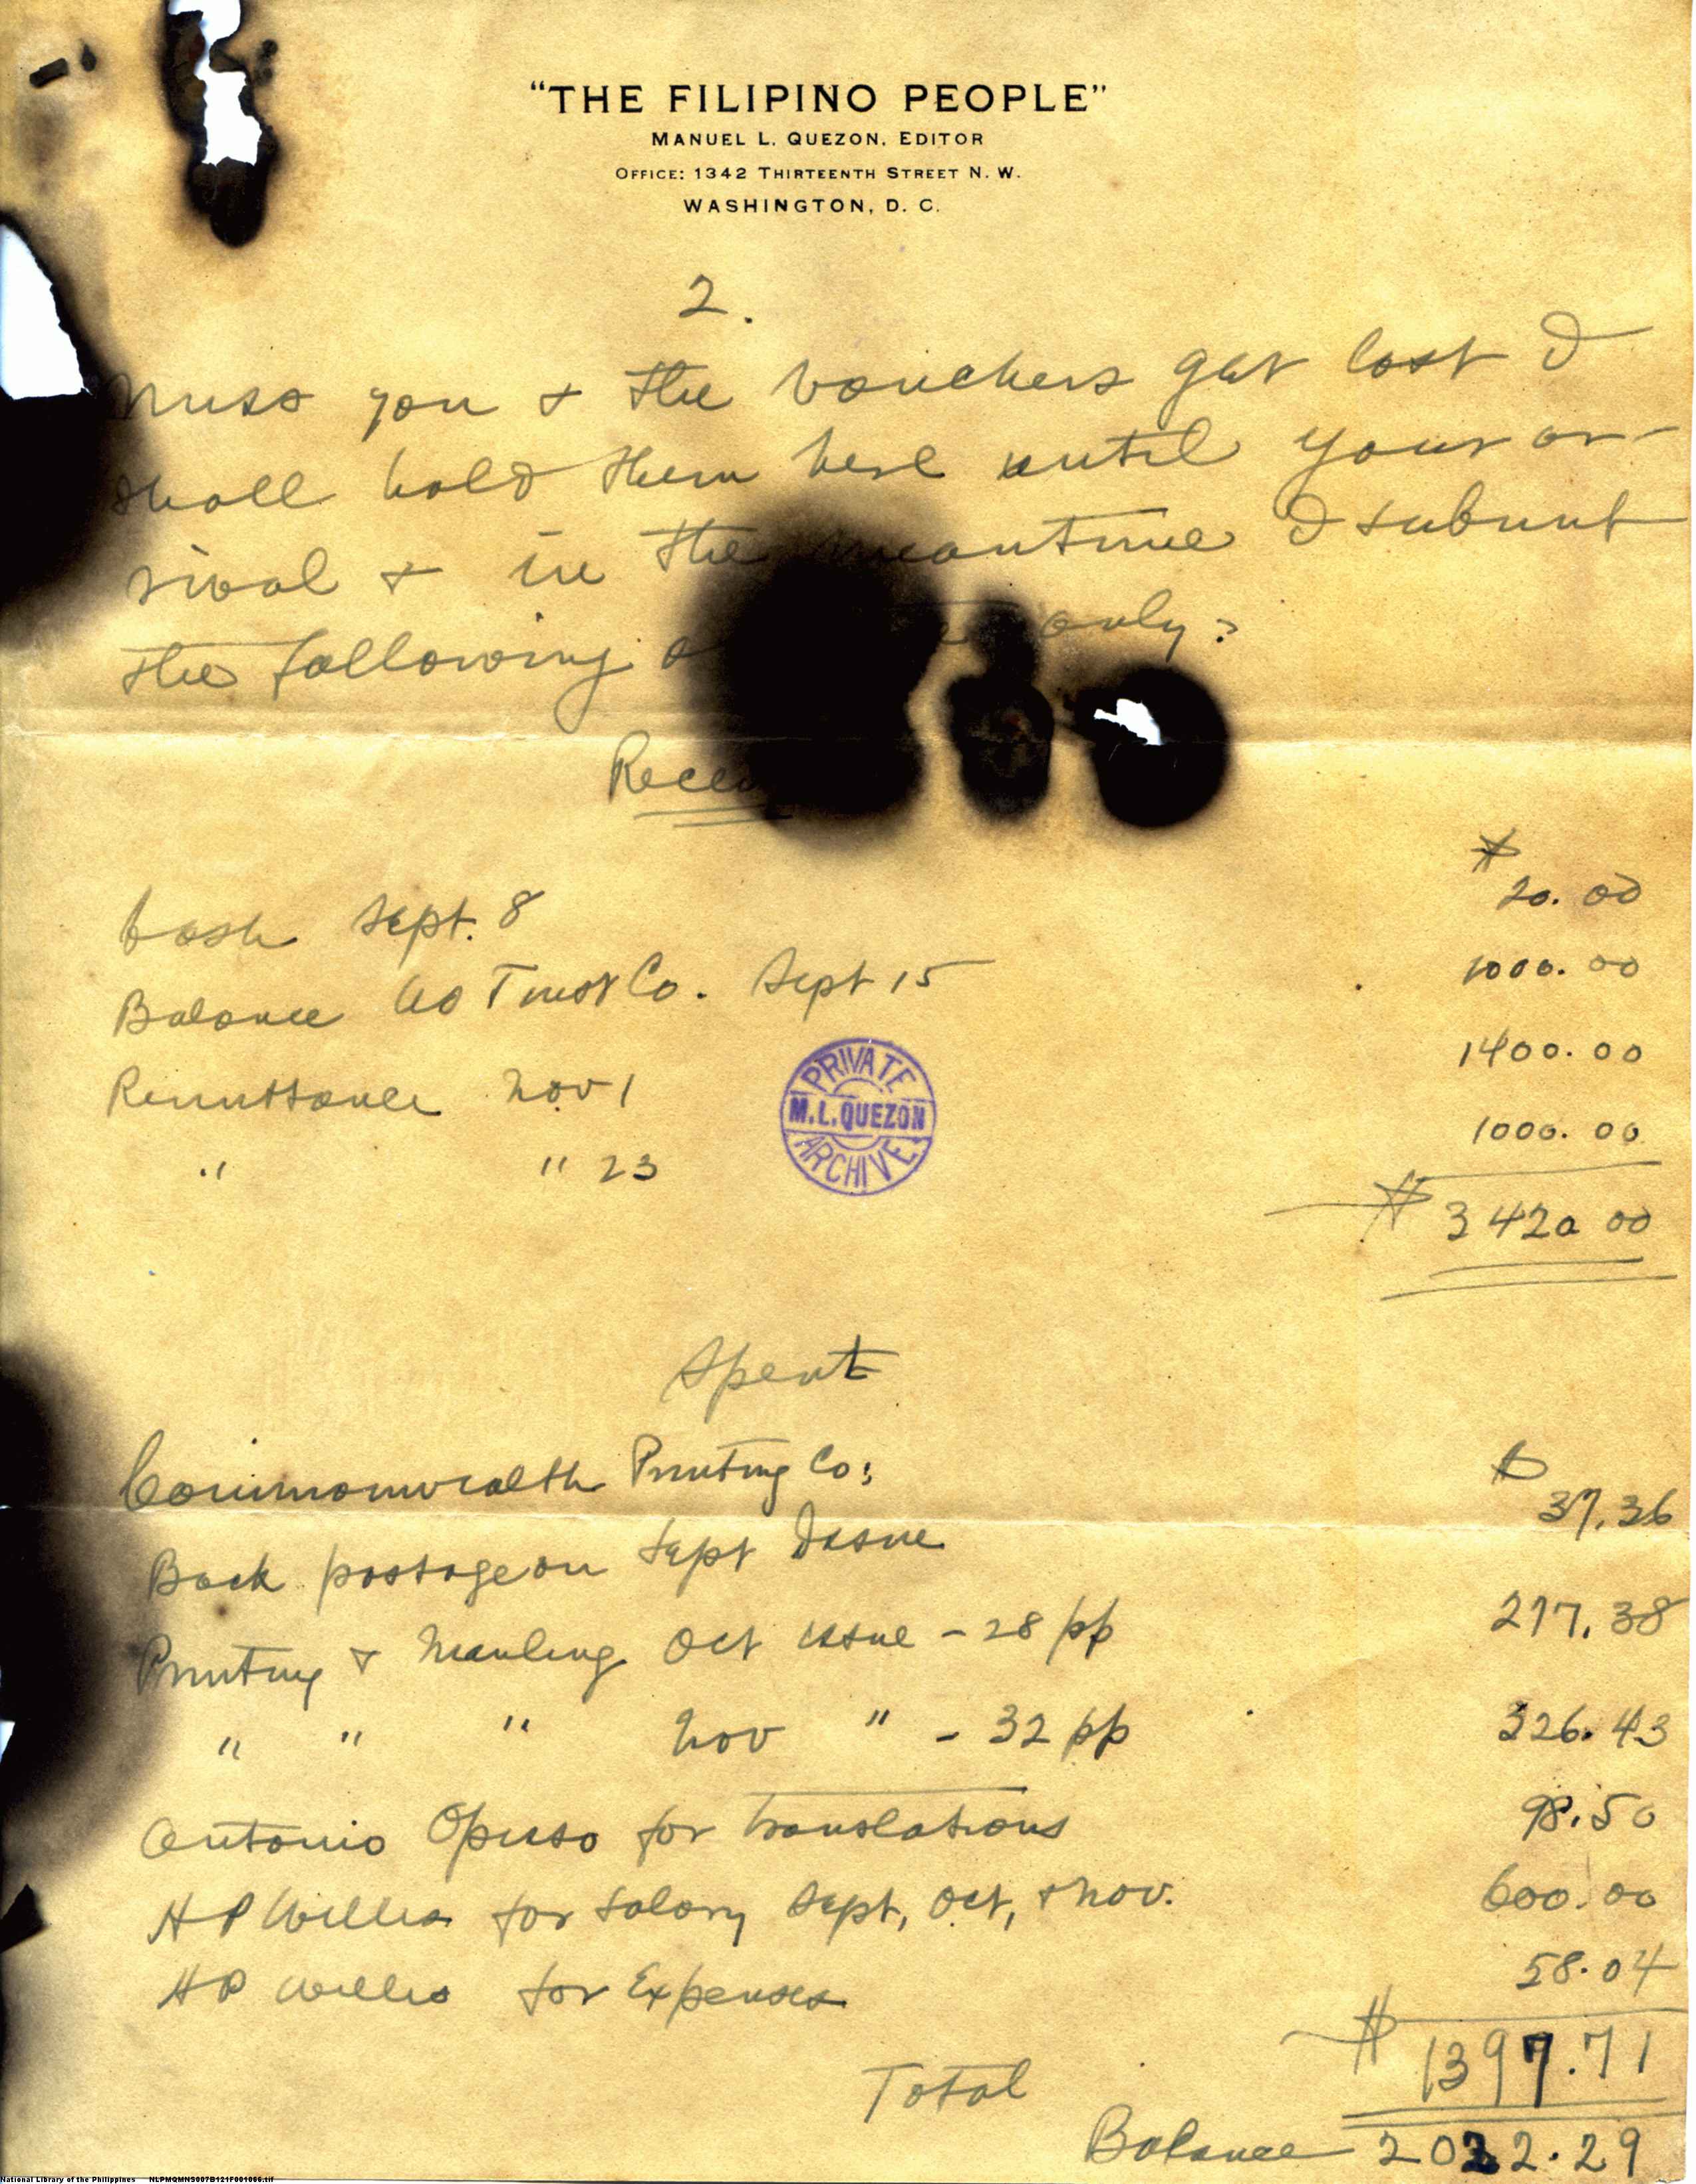 "THE FILIPINO PEOPLE"
MANUEL L. QUEZON, EDITOR
OFFICE: 1342 THIRTEENTH STREET N. W.
WASHINGTON, D. C.
2.
miss you & the vouchers get lost I
shall hold them here until your ar-
rival & in the meantime I submit
the following only:
Cash Sept. 8 $ 20.00
Balance Trust Co. Sept 15 1000.00
Remittance Nov 1 1400.00
" " 23 1000.00
$ 3420 00
PRIVATE
M.L.QUEZON
ARCHIVE
Spent
Commonwealth Printing Co:
Back postage on Sept Issue $ 37.36
Printing & Mailing Oct issue - 28 pp 277.38
" " " Nov " - 32 pp 326.43
Antonio Opisso for translations 98.50
H P Willis for salary Sept, Oct, & Nov. 600.00
H P Willis for Expenses 58.04
Total $ 1397.71
Balance 2022.29
National Library of the Philippines NLPMQMNS007B121F001006.tif